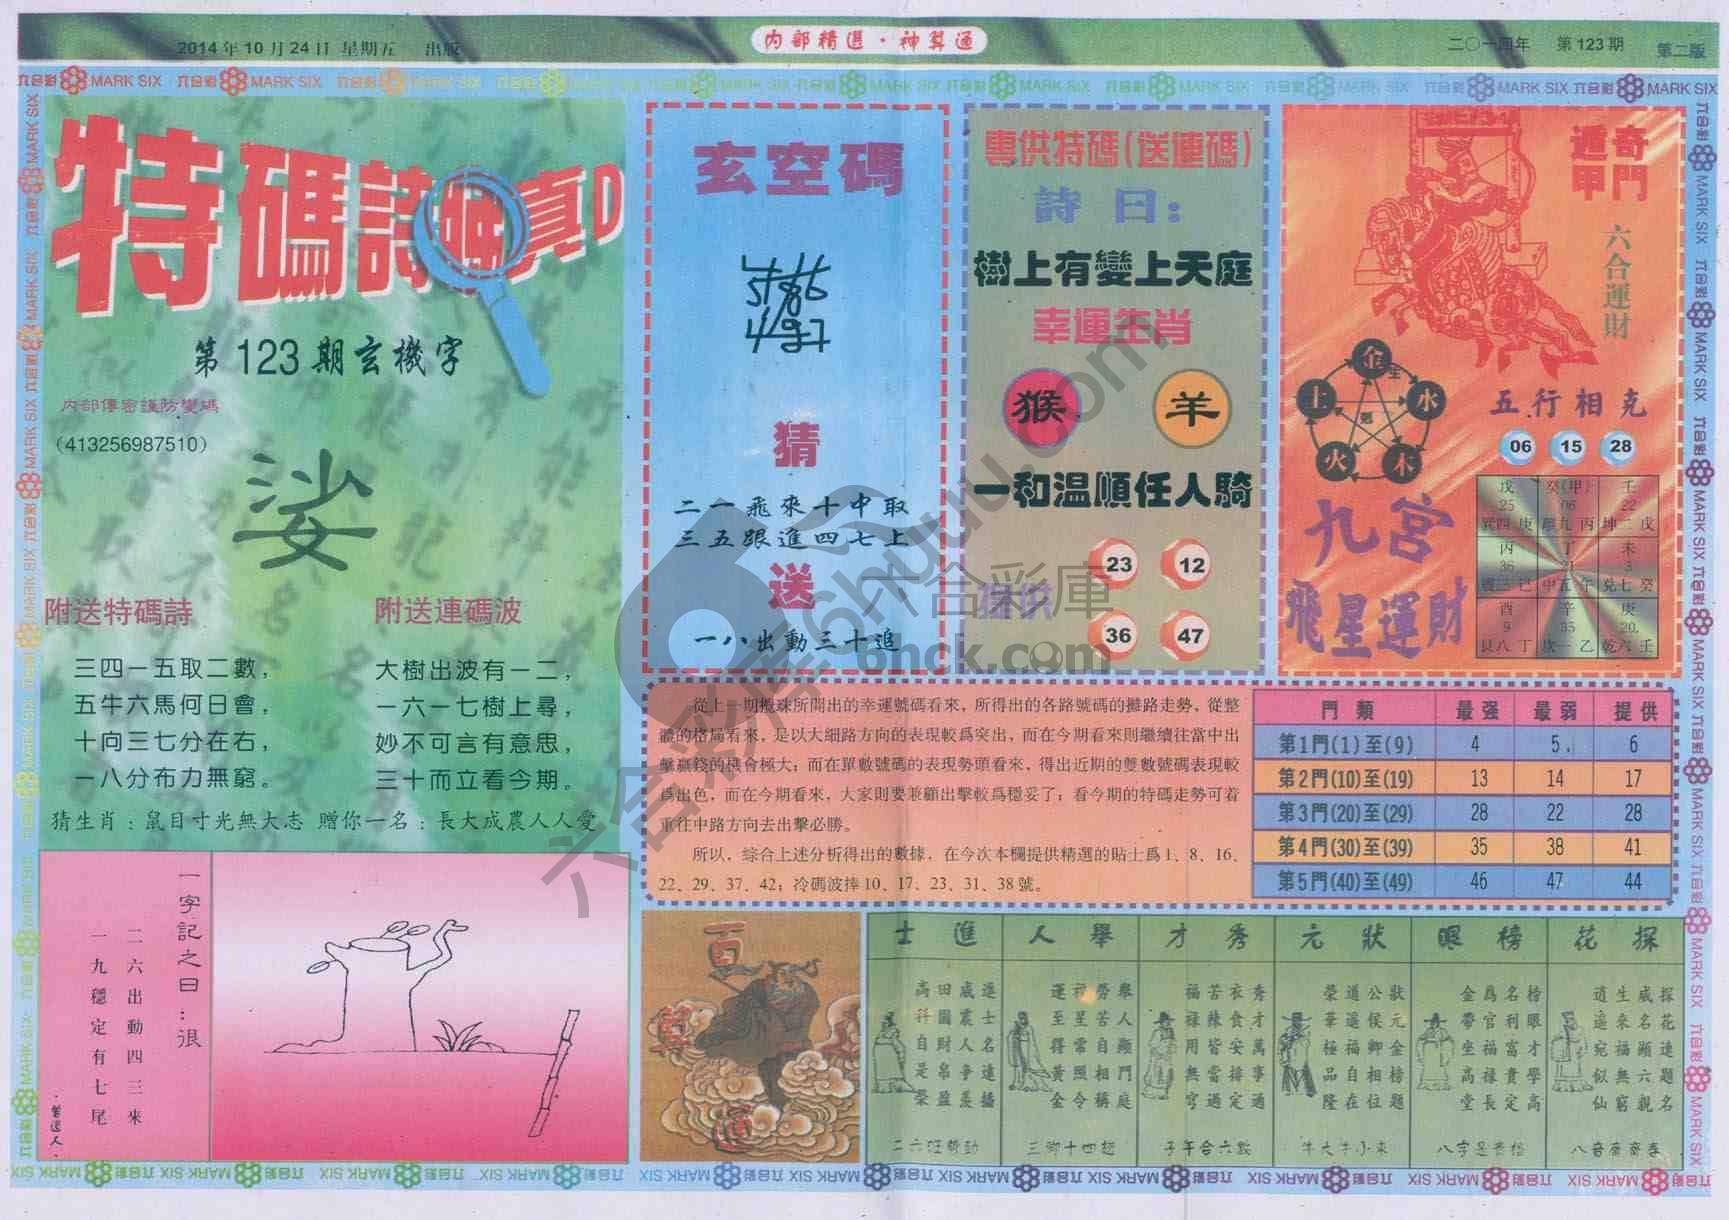 2014年10月24日 星期五 出版
内部精選·神算通
二〇一四年 第123期 第二版
六合彩 MARK SIX
特碼詩 真D
第123期玄機字
内部傳密謹防變碼
(413256987510)
娑
附送特碼詩
三四一五取二數，
五牛六馬何日會，
十向三七分在右，
一八分布力無窮。
附送連碼波
大樹出波有一二，
一六一七樹上尋，
妙不可言有意思，
三十而立看今期。
猜生肖：鼠目寸光無大志 贈你一名：長大成農人人愛
一字記之曰：很
二六出動四三來
一九穩定有七尾
·曾道人·
玄空碼
猜
二一飛來十中取
三五跟進四七上
送
一八出動三十追
專供特碼(送連碼)
詩曰：
樹上有變上天庭
幸運生肖
猴 羊
一和温順任人騎
提供
23 12
36 47
奇門遁甲
六合運財
金
水
木
火
土
五行相克
06 15 28
九宮
飛星運財
戊 癸(甲) 壬
25 06 22
巽四 庚 離九 丙 坤二 戊
丙 丁 未
36 3
震三 巳 中五 午 兑七 癸
酉 辛 庚
9 35 20
艮八 丁 坎一 乙 乾六 壬
從上一期攪珠所開出的幸運號碼看來，所得出的各路號碼的攤路走勢，從整
體的格局看來，是以大細路方向的表現較爲突出，而在今期看來則繼續往當中出
擊贏錢的機會極大；而在單數號碼的表現勢頭看來，得出近期的雙數號碼表現較
爲出色，而在今期看來，大家則要兼顧出擊較爲穩妥了；看今期的特碼走勢可着
重往中路方向去出擊必勝。
所以，綜合上述分析得出的數據，在今次本欄提供精選的貼士爲1、8、16、
22、29、37、42；冷碼波捧10、17、23、31、38號。
門類 最强 最弱 提供
第1門(1)至(9) 4 5 6
第2門(10)至(19) 13 14 17
第3門(20)至(29) 28 22 28
第4門(30)至(39) 35 38 41
第5門(40)至(49) 46 47 44
百
萬
通
探花
探花連題名
威名顯六親
生來福無窮
逍遥宛似仙
八音齊齊奏
榜眼
榜眼才學高
名利富貴定
爲官福祿長
金帶坐高堂
狀元
狀元金榜題
公侯卿相位
道遥福自在
榮華極品隆
牛大牛小來
秀才
秀才萬事通
衣食安排定
苦辣皆當過
福祿用無窮
子年合六數
舉人
舉人顯門庭
勞苦自相稱
福星常照令
運至得黃金
三鄉十四超
進士
進士名連播
威震人爭羨
田園財帛盈
高科自是榮
二六班勢動
六合彩庫 6hck.com